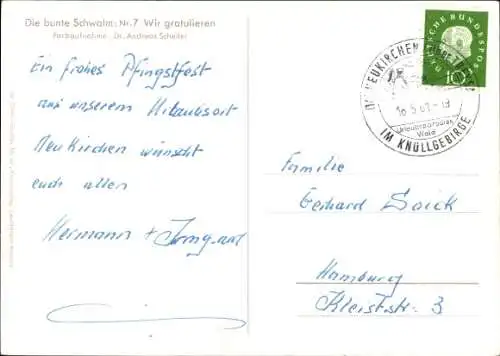 Die bunte Schwalm: Nr. 7 Wir gratulieren
Farbaufnahme Dr. Andreas Scheller
Ein frohes Pfingstfest
aus unserem Urlaubsort
Neukirchen wünscht
euch allen
Hermann + Irmgard
DEUTSCHE BUNDESPOST
10
NEUKIRCHEN
IM KNÜLLGEBIRGE
Familie
Gerhard Saick
Hamburg
Kleiststr. 3